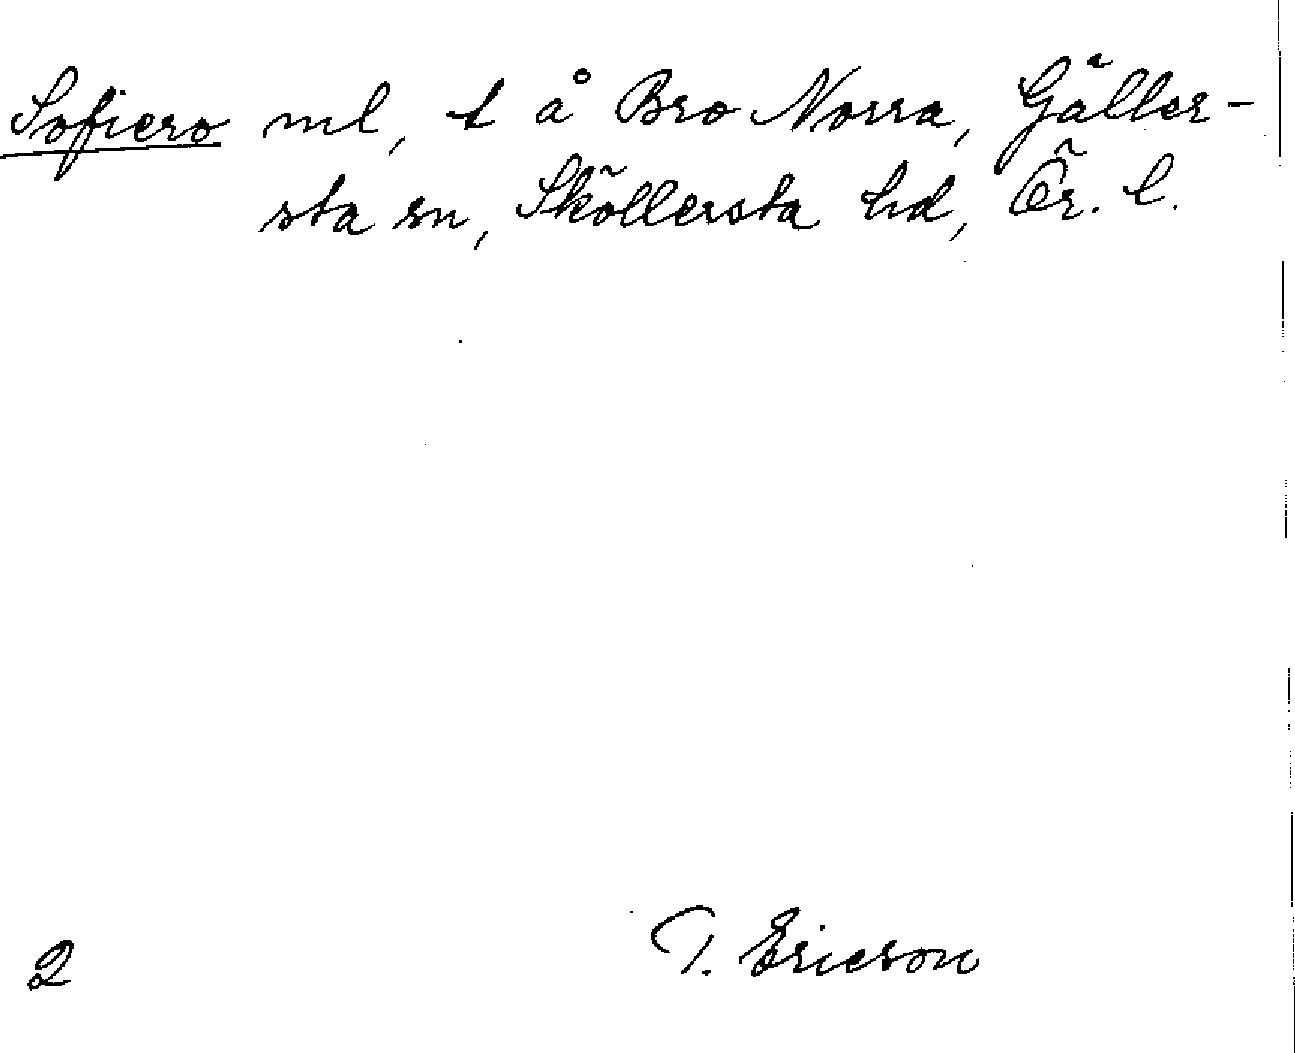 Sofiero ml, t å Bro Norra, Gäller-
sta sn, Sköllersta hd, Ör. l.
2
T. Ericson